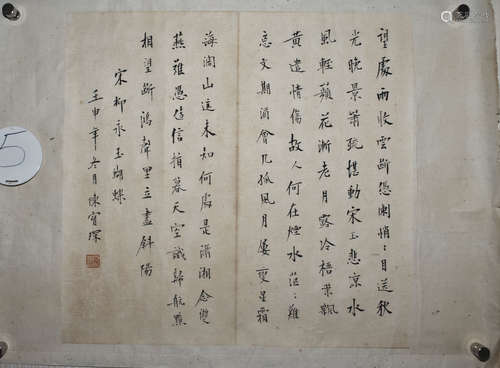 望處雨收雲斷憑闌悄〻目送秋
光晚景蕭疏堪動宋玉悲涼水
風輕蘋花漸老月露冷梧葉飄
黃遣情傷故人何在煙水茫〻難
忘文期酒會几孤風月屢變星霜
海濶山遙未知何處是瀟湘念雙
燕難憑遠信指暮天空識歸航黯
相望斷鴻聲里立盡斜陽
宋柳永玉蝴蝶
壬申年冬月陳寳琛
5